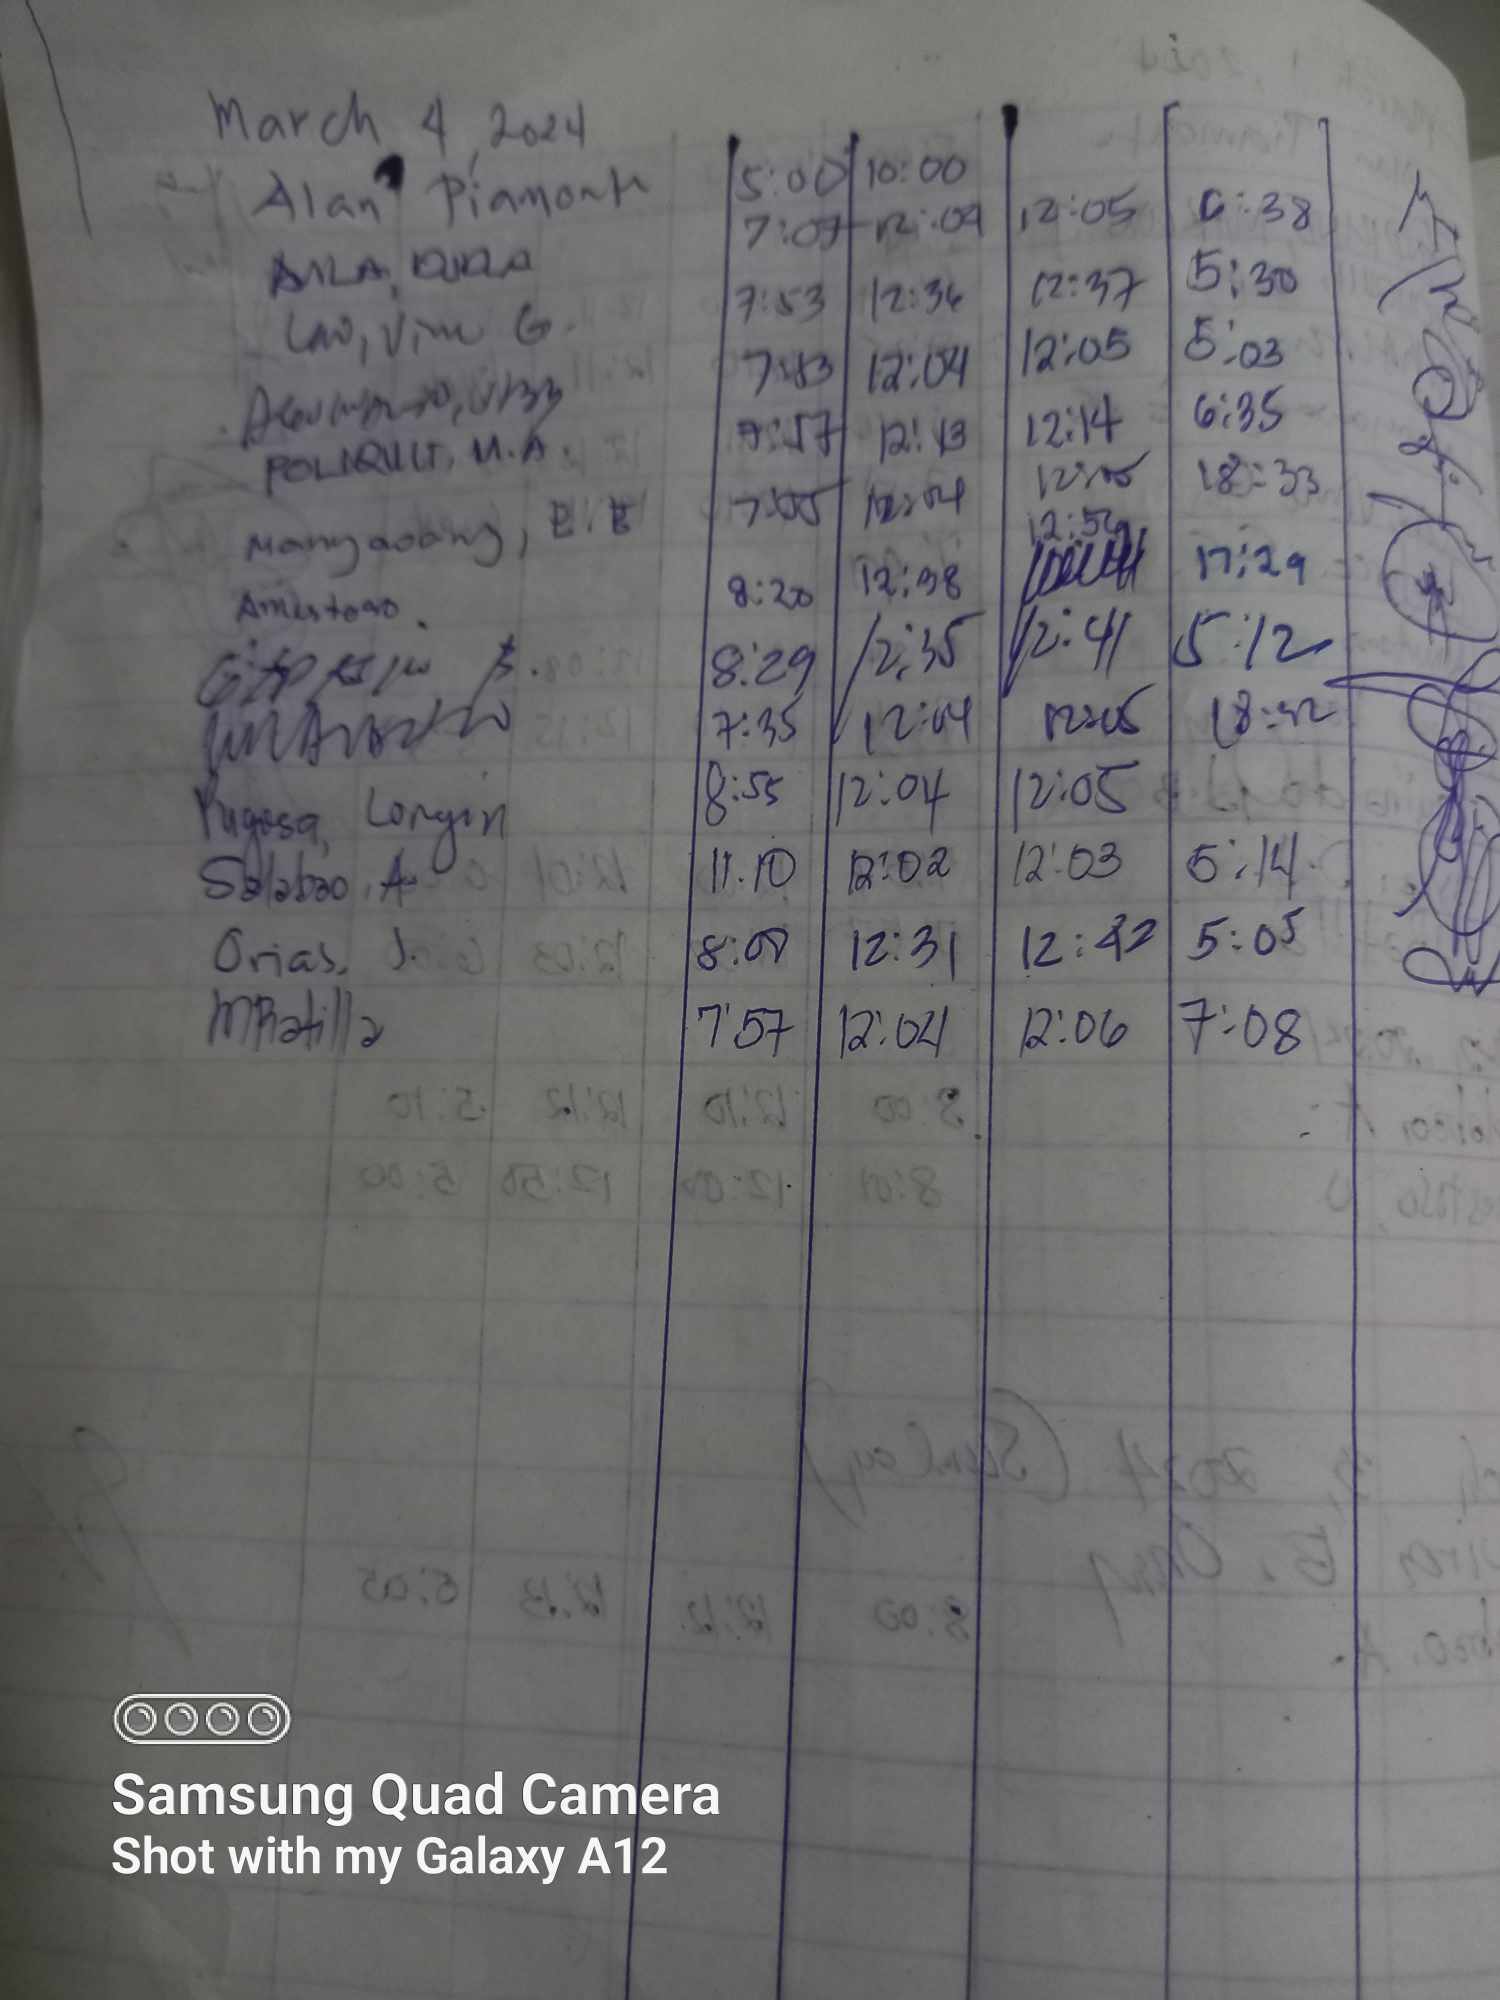 March 4, 2024
Alan Piamonte 5:00 10:00
7:07 12:04 12:05 6:38
Lao, Vim G. 7:53 12:36 12:37 5:30
7:43 12:04 12:05 5:03
POLIQUIT, M.A. 7:57 12:13 12:14 6:35
Mangaoang, E.E 7:55 12:04 12:05 18:33
Amestoso. 8:20 12:38 12:59 17:29
8:29 12:35 12:41 5:12
7:35 12:04 12:05 18:32
Pugosa, Longin 8:55 12:04 12:05
Salabao, A 11:10 12:02 12:03 5:14
Orias, J. 8:00 12:31 12:42 5:05
MRatilla 7:57 12:04 12:06 7:08
Samsung Quad Camera
Shot with my Galaxy A12